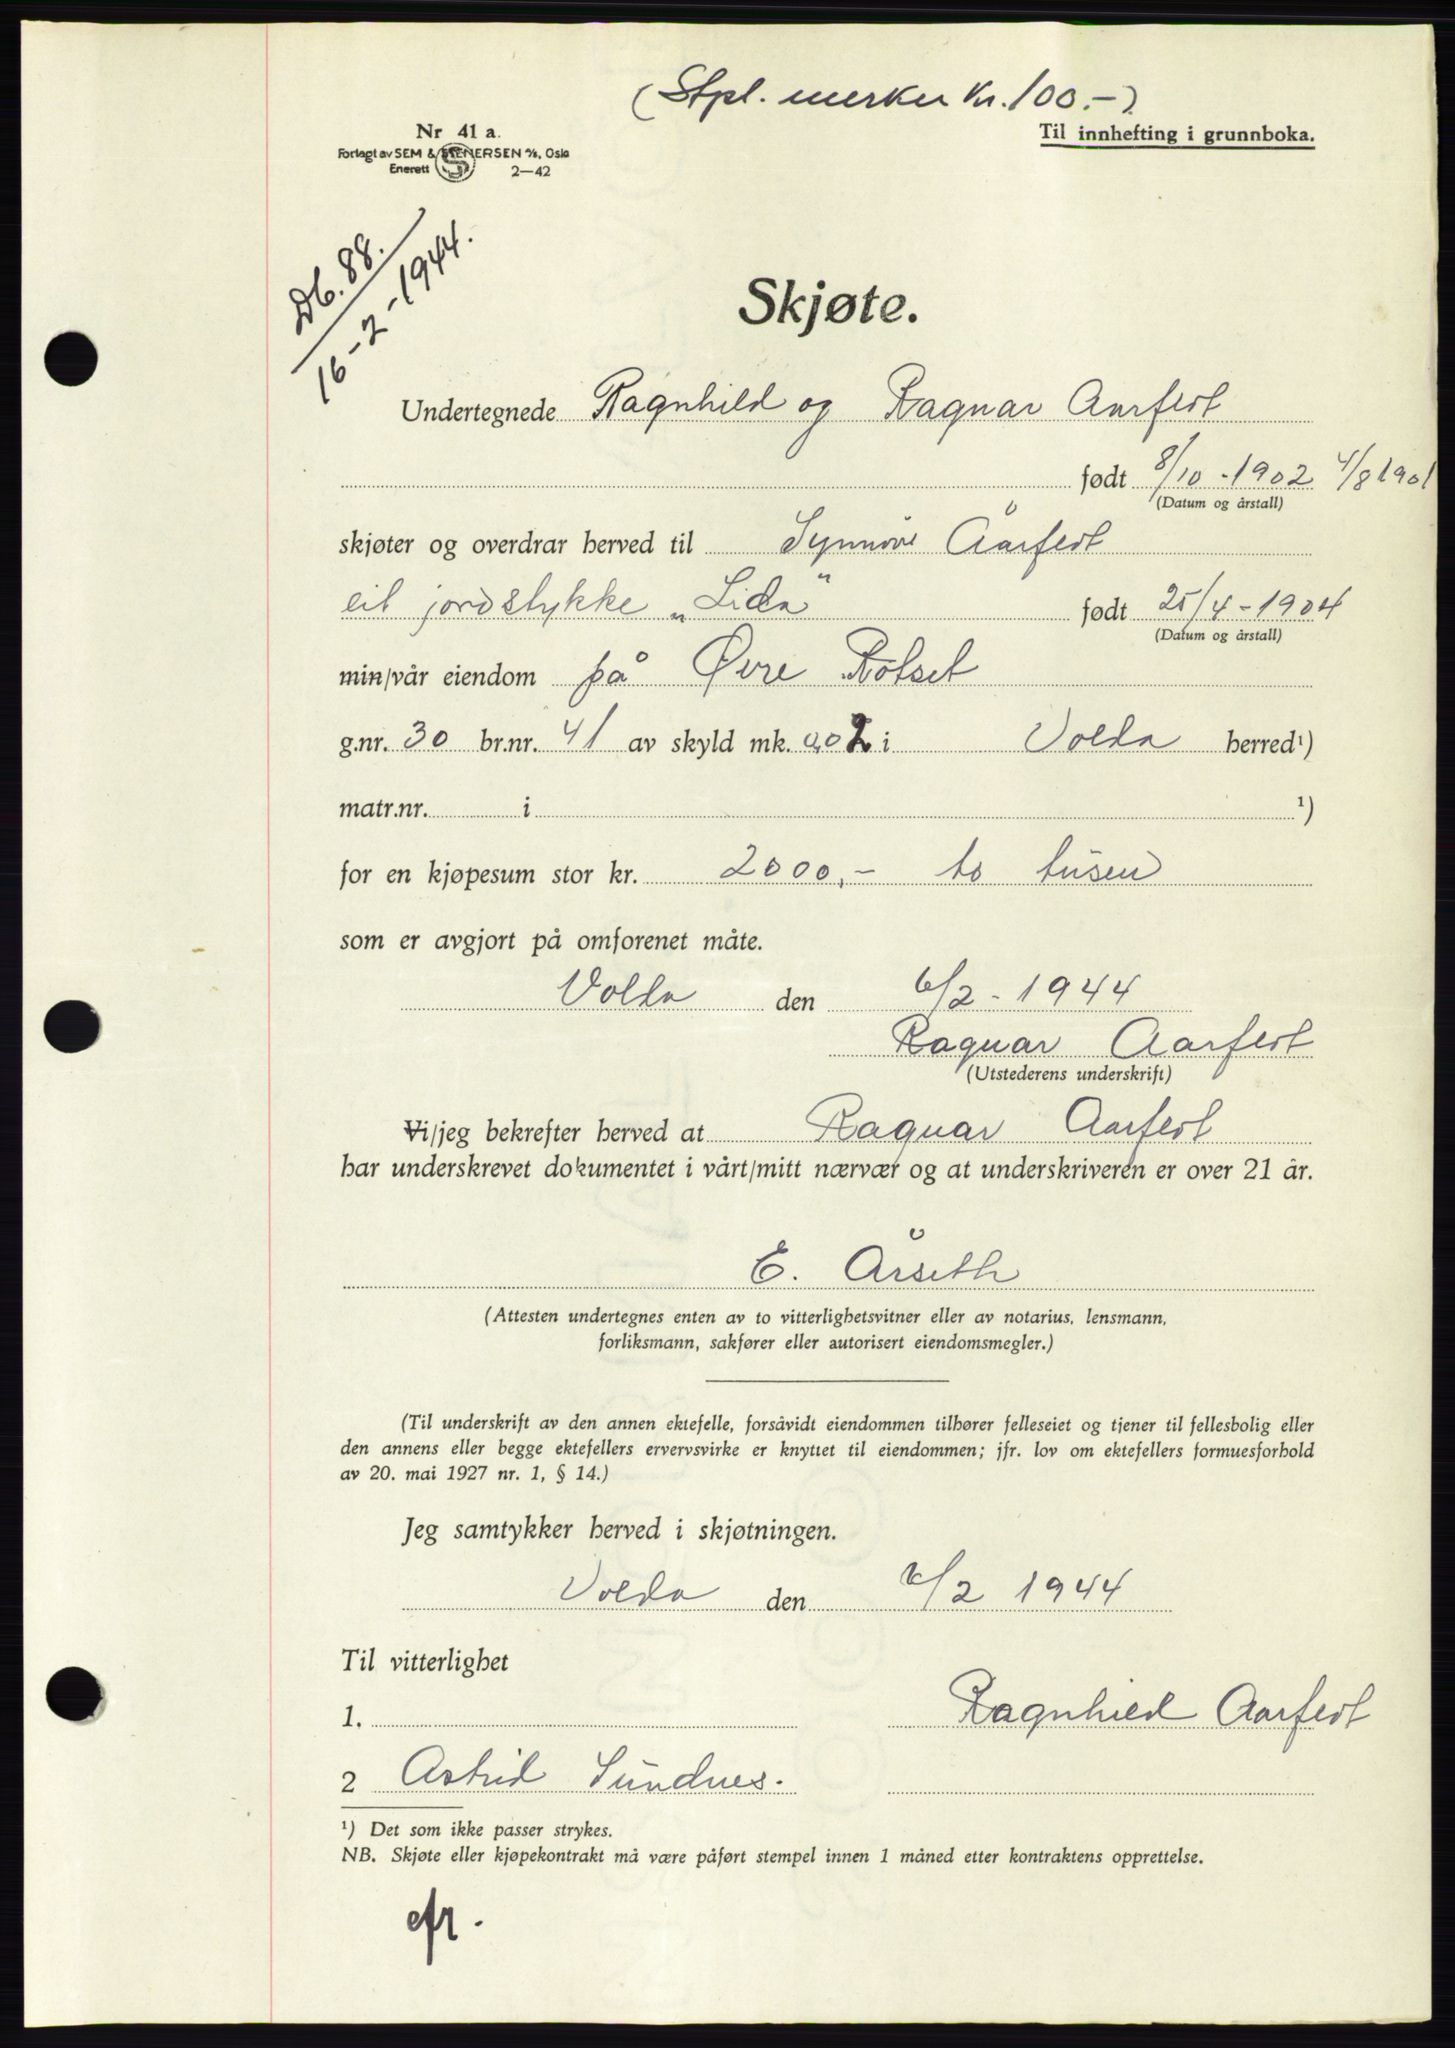 (Stpl. merker kr. 100.-)
Nr 41 a.
Til innhefting i grunnboka.
Forlagt av SEM & STENERSEN A/S, Oslo
Enerett S 2—42
Db. 88.
16-2-1944.
Skjøte.
Undertegnede Ragnhild og Ragnar Aarflot
født 8/10-1902 4/8 1901
(Datum og årstall)
skjøter og overdrar herved til Synnøve Åarflot
eit jordstykke „Lida" født 25/4-1904
(Datum og årstall)
min/vår eiendom på Øvre Rotset
g.nr. 30 br.nr. 41 av skyld mk. 0,02 i Volda herred¹)
matr.nr. i ¹)
for en kjøpesum stor kr. 2000,- to tusen
som er avgjort på omforenet måte.
Volda den 6/2-1944
Ragnar Aarflot
(Utstederens underskrift)
Vi/jeg bekrefter herved at Ragnar Aarflot
har underskrevet dokumentet i vårt/mitt nærvær og at underskriveren er over 21 år.
E. Årseth
(Attesten undertegnes enten av to vitterlighetsvitner eller av notarius, lensmann,
forliksmann, sakfører eller autorisert eiendomsmegler.)
(Til underskrift av den annen ektefelle, forsåvidt eiendommen tilhører felleseiet og tjener til fellesbolig eller
den annens eller begge ektefellers ervervsvirke er knyttet til eiendommen; jfr. lov om ektefellers formuesforhold
av 20. mai 1927 nr. 1, § 14.)
Jeg samtykker herved i skjøtningen.
Volda den 6/2 1944
Til vitterlighet
1. Ragnhild Aarflot
2 Astrid Sundnes.
¹) Det som ikke passer strykes.
NB. Skjøte eller kjøpekontrakt må være påført stempel innen 1 måned etter kontraktens opprettelse.
efr.